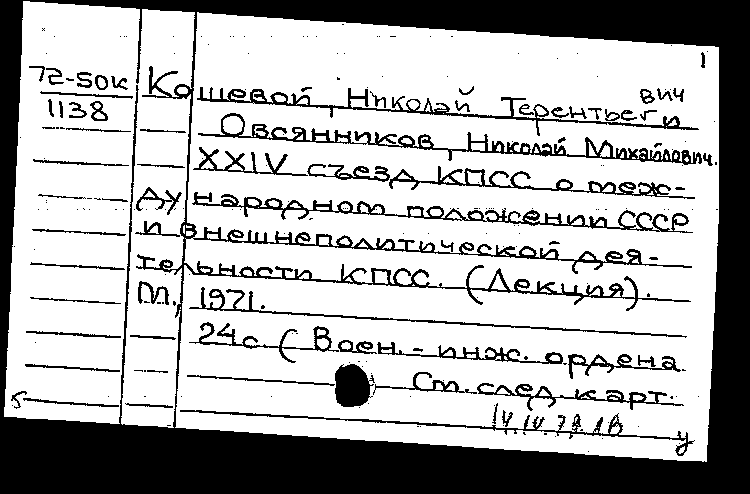 1
72-50к Кошевой, Николай Терентьевич и
1138
Овсянников, Николай Михайлович.
XXIV съезд КПСС о меж-
дународном положении СССР
и внешнеполитической дея-
тельности КПСС. (Лекция).
М., 1971.
24с. (Воен.-инж. ордена
См. след. карт.
5
у